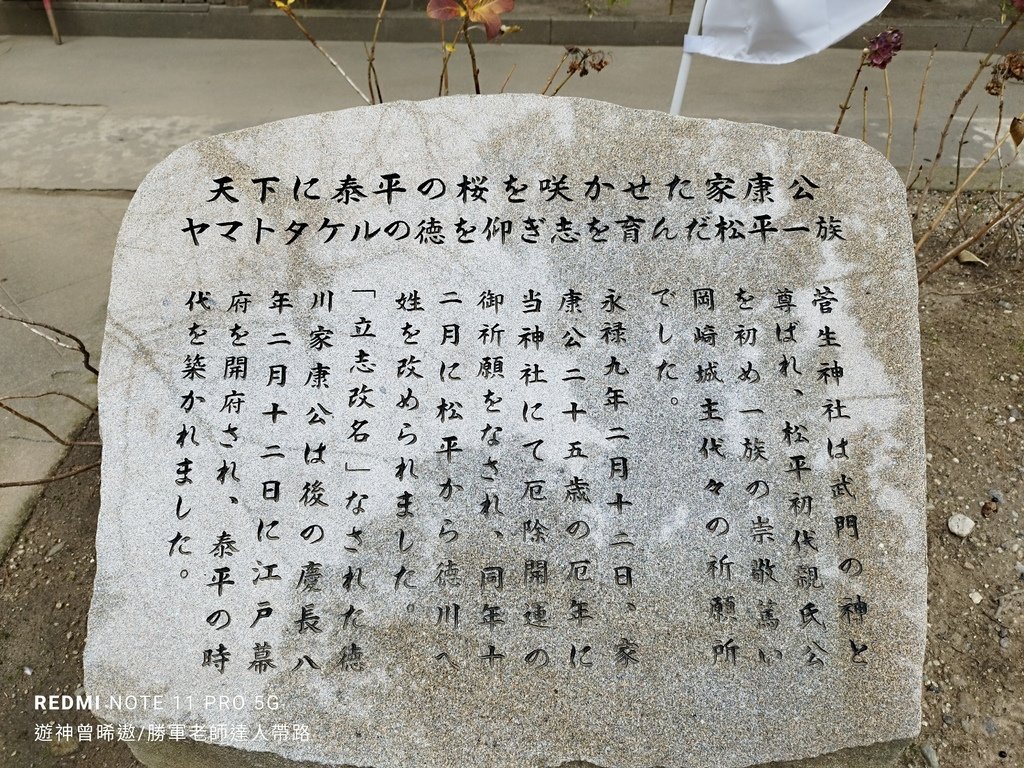 天下に泰平の桜を咲かせた家康公
ヤマトタケルの徳を仰ぎ志を育んだ松平一族
菅生神社は武門の神と
尊ばれ、松平初代親氏公
を初め一族の崇敬篤い
岡崎城主代々の祈願所
でした。
永禄九年二月十二日。家
康公二十五歳の厄年に
当神社にて厄除開運の
御祈願をなされ、同年十
二月に松平から徳川へ
姓を改められました。
「立志改名」なされた徳
川家康公は後の慶長八
年二月十二日に江戸幕
府を開府され、泰平の時
代を築かれました。
REDMI NOTE 11 PRO 5G
遊神曾晞遨/勝軍老師達人帶路